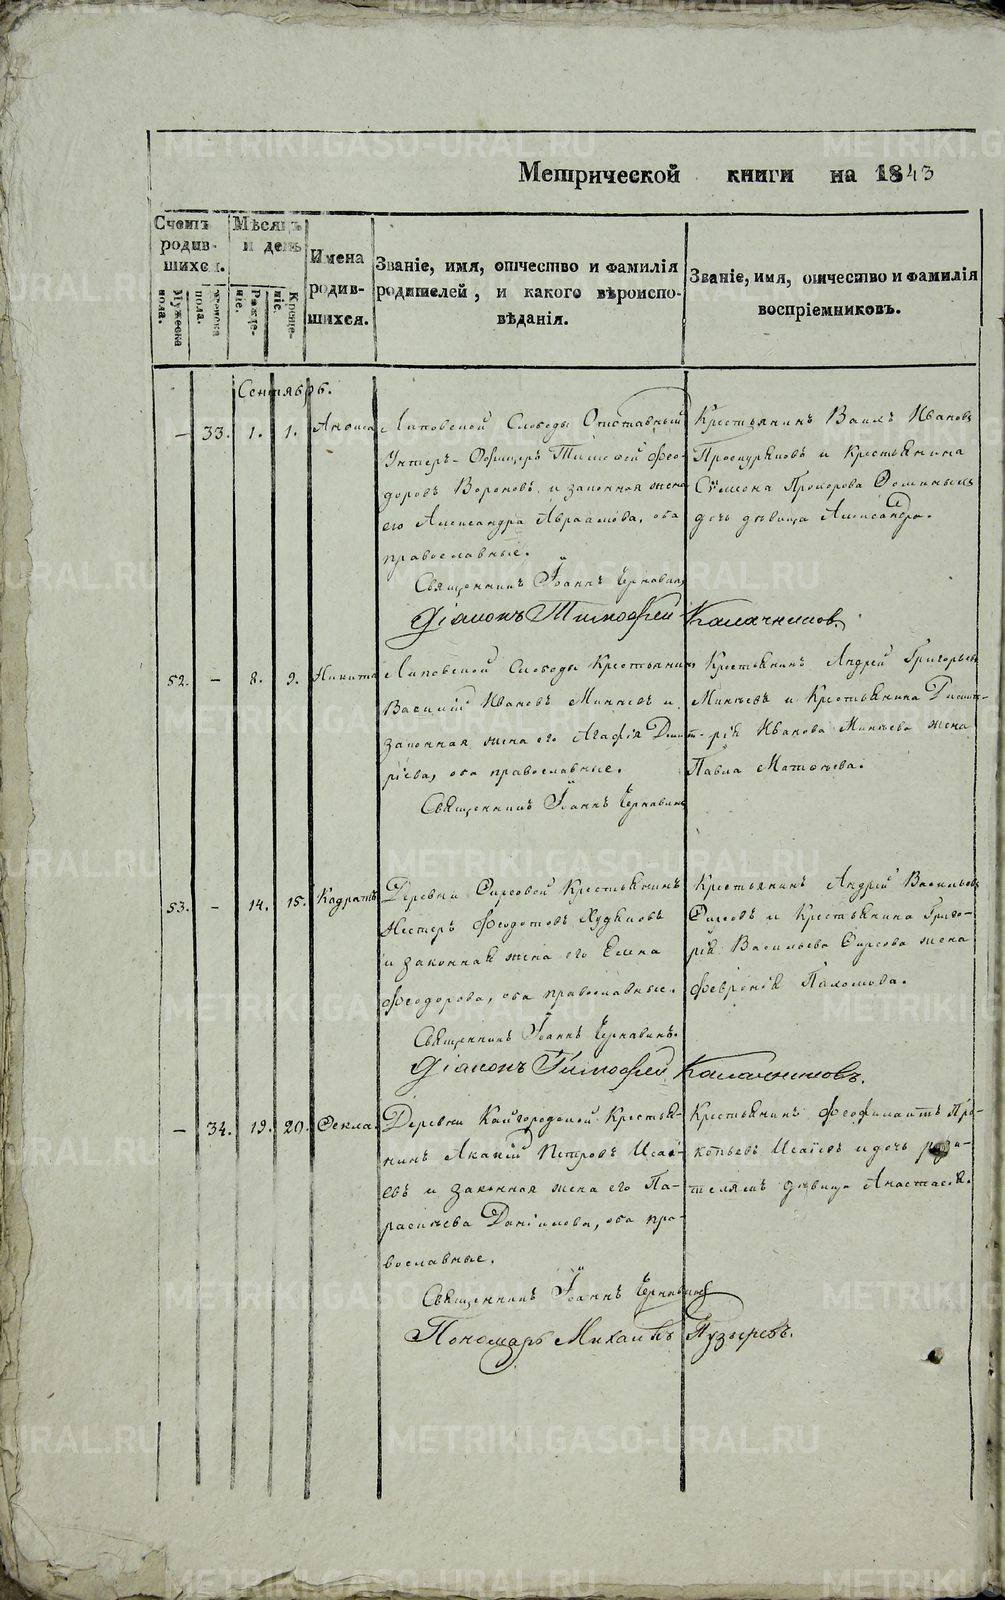 Метрической книги на 1843
Счетъ родившихся.
Мѣсяцъ и день
Имена родившихся.
Званіе, имя, отчество и фамилія родителей, и какого вѣроисповѣданія.
Званіе, имя, отчество и фамилія воспріемниковъ.
Мужеска пола.
женска пола.
Рожденіе.
Крещеніе.
Сентябрь.
— 33. 1. 1. Анисія
Липовской Слободы Отставный
Унтеръ-Офицеръ Тимофей Фео-
доровъ Вороновъ и законная жена
его Александра Авраамова, оба
православные.
Священникъ Іоаннъ Чернавинъ
Діаконъ Тимофей Калачниковъ.
Крестьянинъ Ваилъ Ивановъ
Проскуряковъ и Крестьянина
Симеона Прохорова Ѳоминыхъ
дочь дѣвица Александра.
52. — 8. 9. Никита
Липовской Слободы Крестьянинъ
Василій Ивановъ Минѣевъ и
законная жена его Агафія Димит-
ріева, оба православные.
Священникъ Іоаннъ Чернавинъ
Крестьянинъ Андрей Григорьевъ
Минѣевъ и Крестьянина Димит-
рія Иванова Минѣева жена
Павла Матѳѣева.
53. — 14. 15. Кодратъ
Деревни Фирсовой Крестьянинъ
Нестеръ Феодотовъ Худяковъ
и законная жена его Елена
Феодорова, оба православные.
Священникъ Іоаннъ Чернавинъ.
Діаконъ Тимофей Калачниковъ.
Крестьянинъ Андрей Васильевъ
Фирсовъ и Крестьянина Григо-
рія Васильева Фирсова жена
Февронія Пахомова.
— 34. 19. 20. Ѳекла.
Деревни Кайгородской Крестья-
нинъ Акакій Петровъ Исаі-
евъ и законная жена его Па-
раскѣева Даніилова, оба пра-
вославные.
Священникъ Іоаннъ Чернавинъ
Пономарь Михаилъ Пузыревъ.
Крестьянинъ Феофилактъ Про-
копьевъ Исаіевъ и дочь роди-
телямъ дѣвица Анастасія.
METRIKI.GASO-URAL.RU